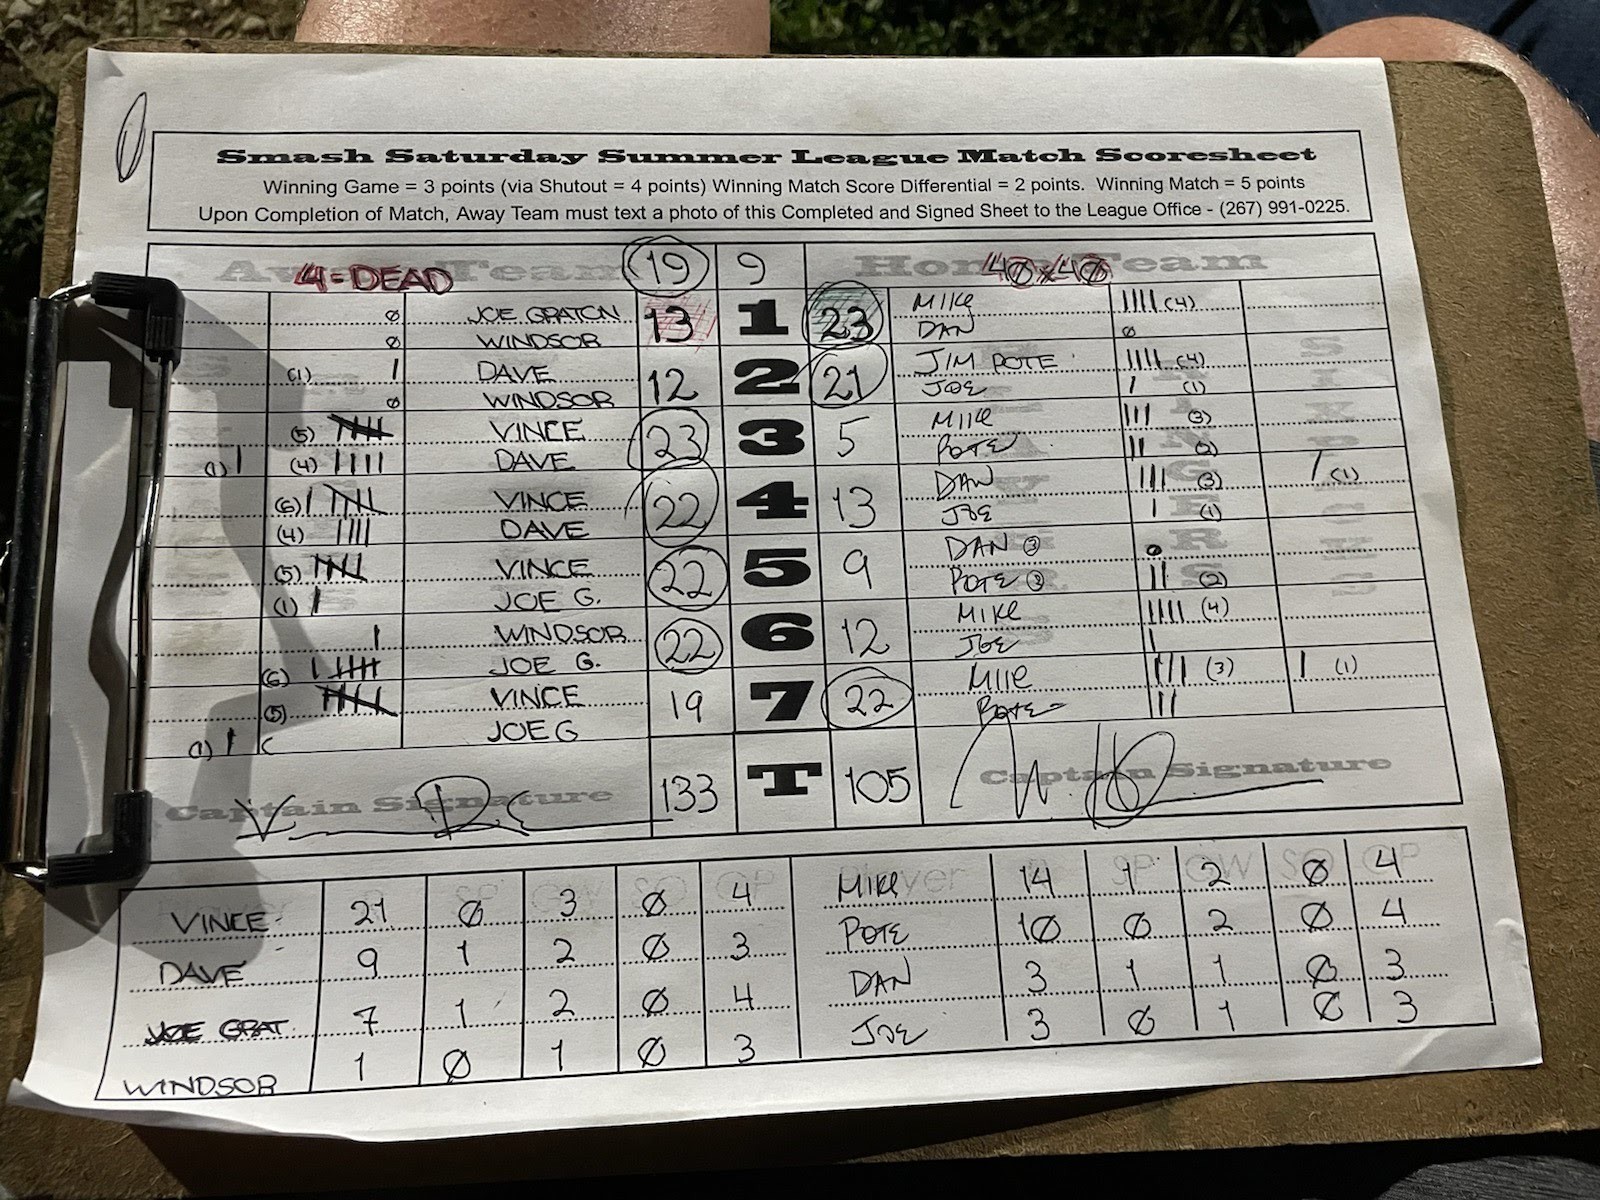 Smash Saturday Summer League Match Scoresheet
Winning Game = 3 points (via Shutout = 4 points) Winning Match Score Differential = 2 points. Winning Match = 5 points
Upon Completion of Match, Away Team must text a photo of this Completed and Signed Sheet to the League Office - (267) 991-0225.
Away Team 4=DEAD 19 9 Home Team 40x40
Ø JOE GRATON 13 1 23 MIKE (4)
Ø WINDSOR DAN Ø
(1) DAVE 12 2 21 JIM POTE (4)
Ø WINDSOR JOE (1)
(5) VINCE 23 3 5 MIKE (3)
(1) (4) DAVE POTE (2)
(6) VINCE 22 4 13 DAN (3) (1)
(4) DAVE JOE (1)
(5) VINCE 22 5 9 DAN 3
(1) JOE G. POTE 3 (2)
WINDSOR 22 6 12 MIKE (4)
(6) JOE G. JOE
(5) VINCE 19 7 22 MIKE (3) (1)
(1) JOE G POTE
Captain Signature 133 T 105 Captain Signature
VINCE 21 Ø 3 Ø 4 MIKE 14 1 2 Ø 4
DAVE 9 1 2 Ø 3 POTE 1Ø Ø 2 Ø 4
JOE GRAT 7 1 2 Ø 4 DAN 3 1 1 Ø 3
WINDSOR 1 Ø 1 Ø 3 JOE 3 Ø 1 Ø 3